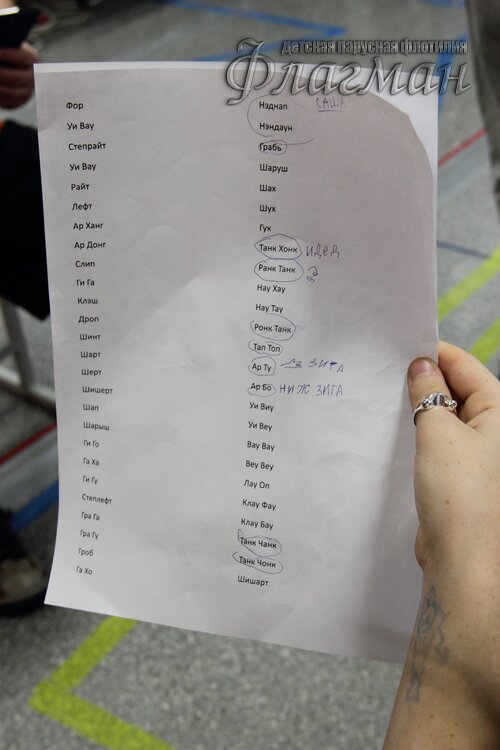 детская парусная флотилия
Флагман
Фор
Уи Вау
Степрайт
Уи Вау
Райт
Лефт
Ар Ханг
Ар Донг
Слип
Ги Га
Клэш
Дроп
Шинт
Шарт
Шерт
Шишерт
Шап
Шарыш
Ги Го
Га Ха
Ги Гу
Степлефт
Гра Га
Гра Гу
Гроб
Га Хо
Нэднап САША
Нэндаун
Грабь
Шаруш
Шах
Шух
Гук
Танк Хонк
Ранк Танк
Нау Хау
Нау Тау
Ронк Танк
Тап Топ
Ар Ту ЗИГА
Ар Бо НИЖ ЗИГА
Уи Виу
Уи Веу
Вау Вау
Веу Веу
Лау Оп
Клау Фау
Клау Бау
Танк Чанк
Танк Чонк
Шишарт